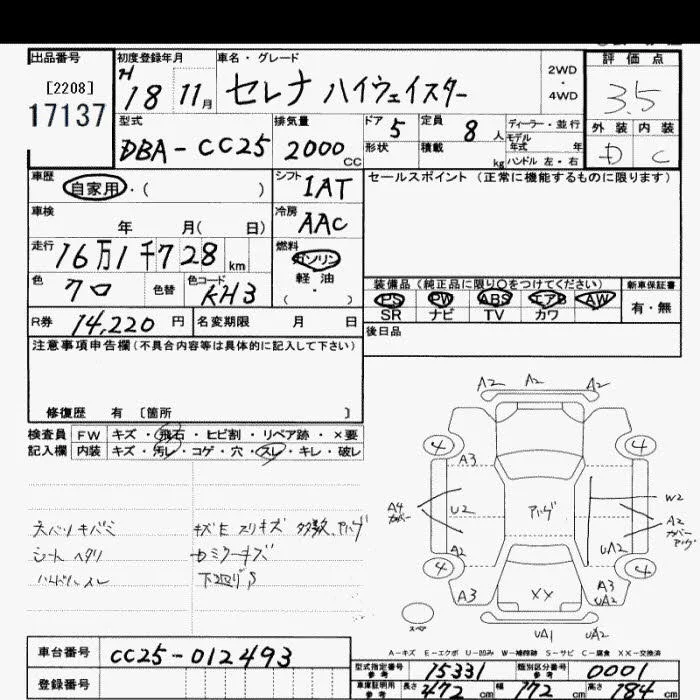 出品番号
[2208]
17137
初度登録年月
H 18 11月
車名・グレード
セレナ ハイウェイスター
2WD
・
4WD
評価点
3.5
外装 内装
D C
型式
DBA-CC25
排気量
2000 CC
ドア 5
形状
定員 8人
積載 kg
ディーラー・並行
モデル
年式 年
ハンドル 左・右
車歴
自家用・( )
シフト
IAT
セールスポイント (正常に機能するものに限ります)
車検
年 月( 日)
冷房
AAC
走行
16万1千728km
燃料
ガソリン
軽・油
・( )
色
クロ
色替
色コード
KH3
装備品(純正品に限り○をつけてください)
新車保証書
PS PW ABS エアB AW
SR ナビ TV カワ
有・無
R券 14,220円
名変期限 月 日
後日品
注意事項申告欄(不具合内容等は具体的に記入して下さい)
修復歴 有 〔箇所 〕
検査員 FW キズ・飛石・ヒビ割・リペア跡・×要
記入欄 内装 キズ・汚レ・コゲ・穴・スレ・キレ・破レ
シートヘタリ
ハンドルスレ
キズE スリキズ 多数、アハグ
A2 A2 A2
4 4
A3
A4
カバー
U2
アハグ
W2
A2
カバー
アハグ
A2
UA2
4 4
A3
XX
A3
UA2
スペア
UA1 UA2
A-キズ E-エクボ U-凹み W-補修跡 S-サビ C-腐食 XX-交換済
車台番号 CC25-012493
登録番号
型式指定番号
参考
15331
類別区分番号
参考
0001
車庫証明用
参考
長さ 472cm
幅 172cm
高さ 184cm